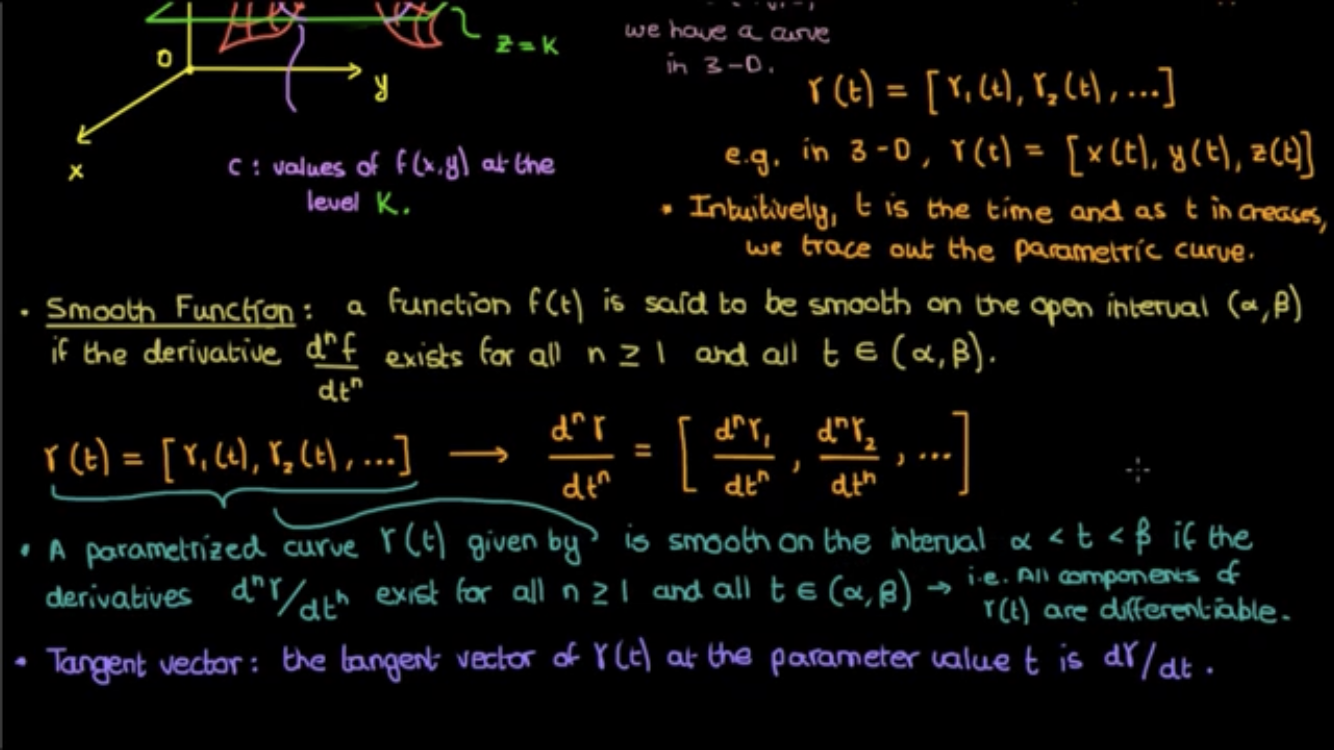 z = K
0
y
x
c : values of f(x,y) at the
level K.
we have a curve
in 3-D.
r(t) = [r₁(t), r₂(t), ...]
e.g. in 3-D, r(t) = [x(t), y(t), z(t)]
• Intuitively, t is the time and as t increases,
we trace out the parametric curve.
• Smooth Function: a function f(t) is said to be smooth on the open interval (α, β)
if the derivative dⁿf/dtⁿ exists for all n ≥ 1 and all t ∈ (α, β).
r(t) = [r₁(t), r₂(t), ...] → dⁿr/dtⁿ = [dⁿr₁/dtⁿ, dⁿr₂/dtⁿ, ...]
• A parametrized curve r(t) given by is smooth on the interval α < t < β if the
derivatives dⁿr/dtⁿ exist for all n ≥ 1 and all t ∈ (α, β) → i.e. All components of
r(t) are differentiable.
• Tangent vector: the tangent vector of r(t) at the parameter value t is dr/dt.